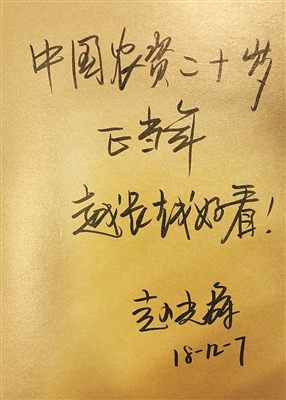 中国农资二十岁
正当年
越长越好看!
18-12-7